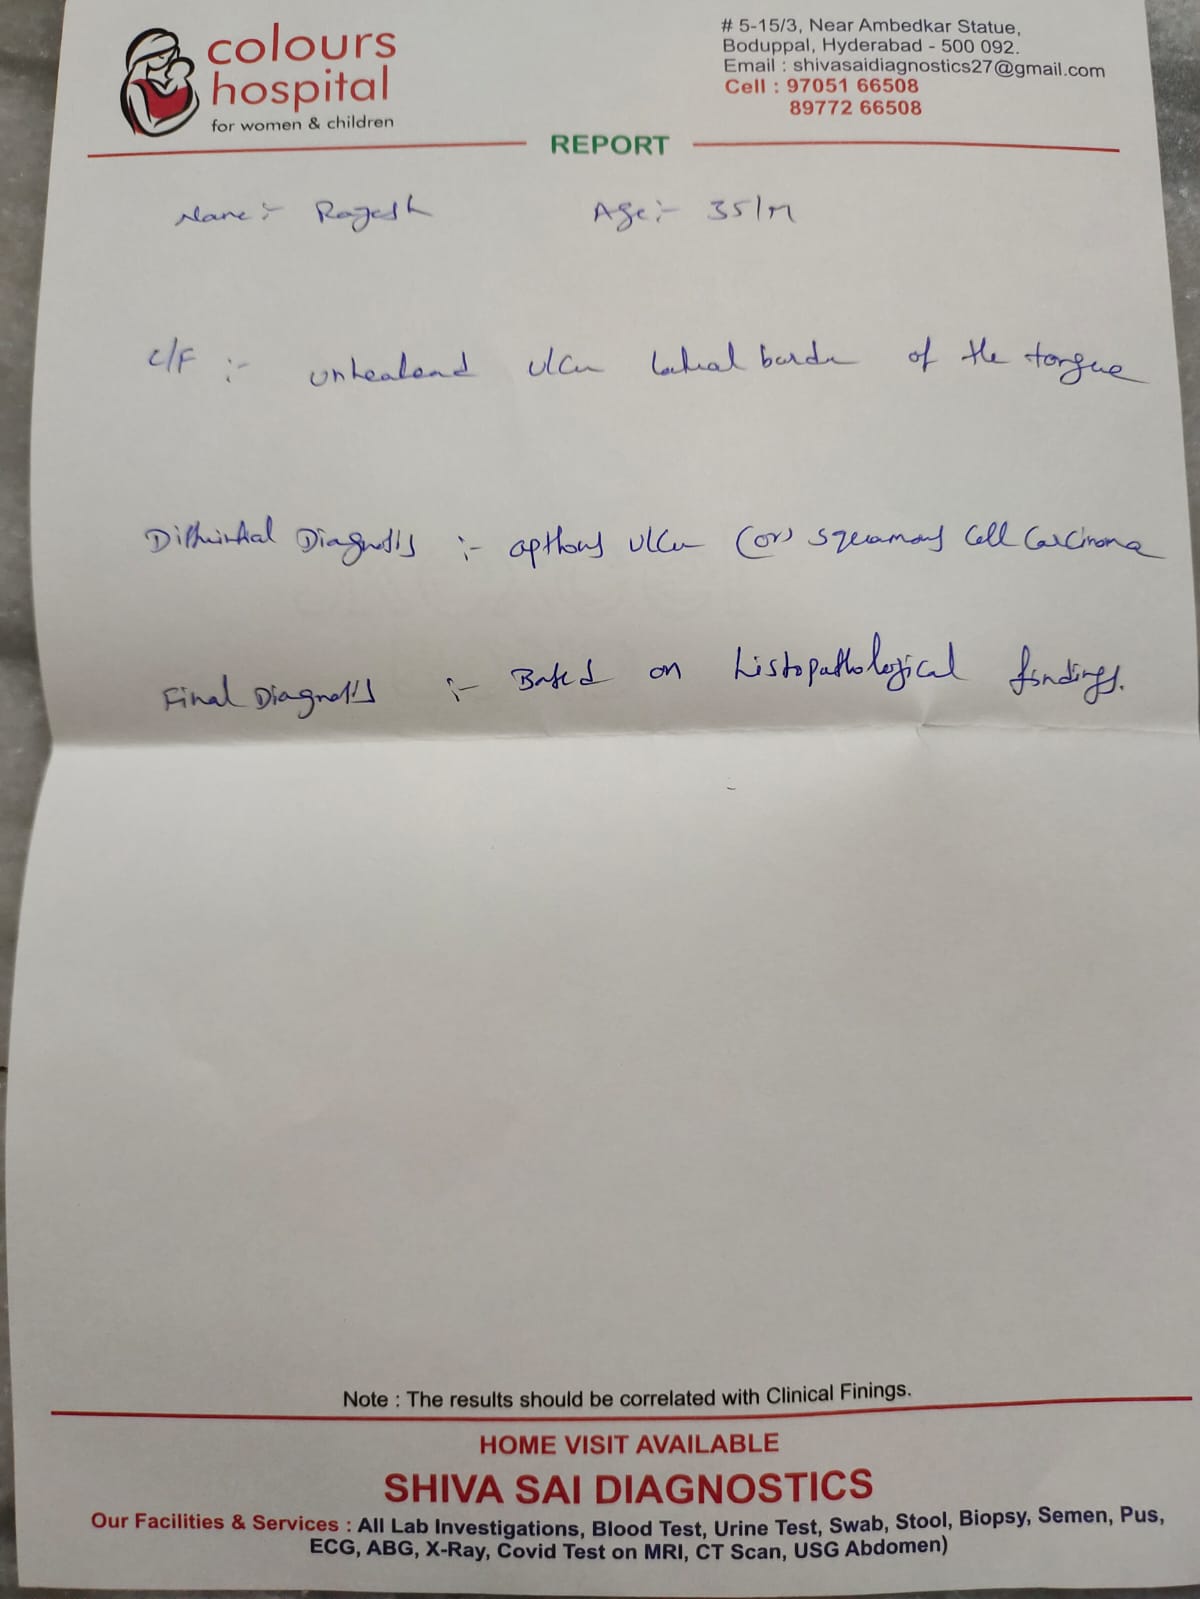 colours
hospital
for women & children
# 5-15/3, Near Ambedkar Statue,
Boduppal, Hyderabad - 500 092.
Email : shivasaidiagnostics27@gmail.com
Cell : 97051 66508
89772 66508
REPORT
Name :- Rajesh Age :- 35/M
C/F :- unhealead ulcer lateral border of the tongue
Differential Diagnosis :- apthous ulcer (or) squamous cell carcinoma
Final Diagnosis :- Based on histopathological findings.
Note : The results should be correlated with Clinical Finings.
HOME VISIT AVAILABLE
SHIVA SAI DIAGNOSTICS
Our Facilities & Services : All Lab Investigations, Blood Test, Urine Test, Swab, Stool, Biopsy, Semen, Pus,
ECG, ABG, X-Ray, Covid Test on MRI, CT Scan, USG Abdomen)